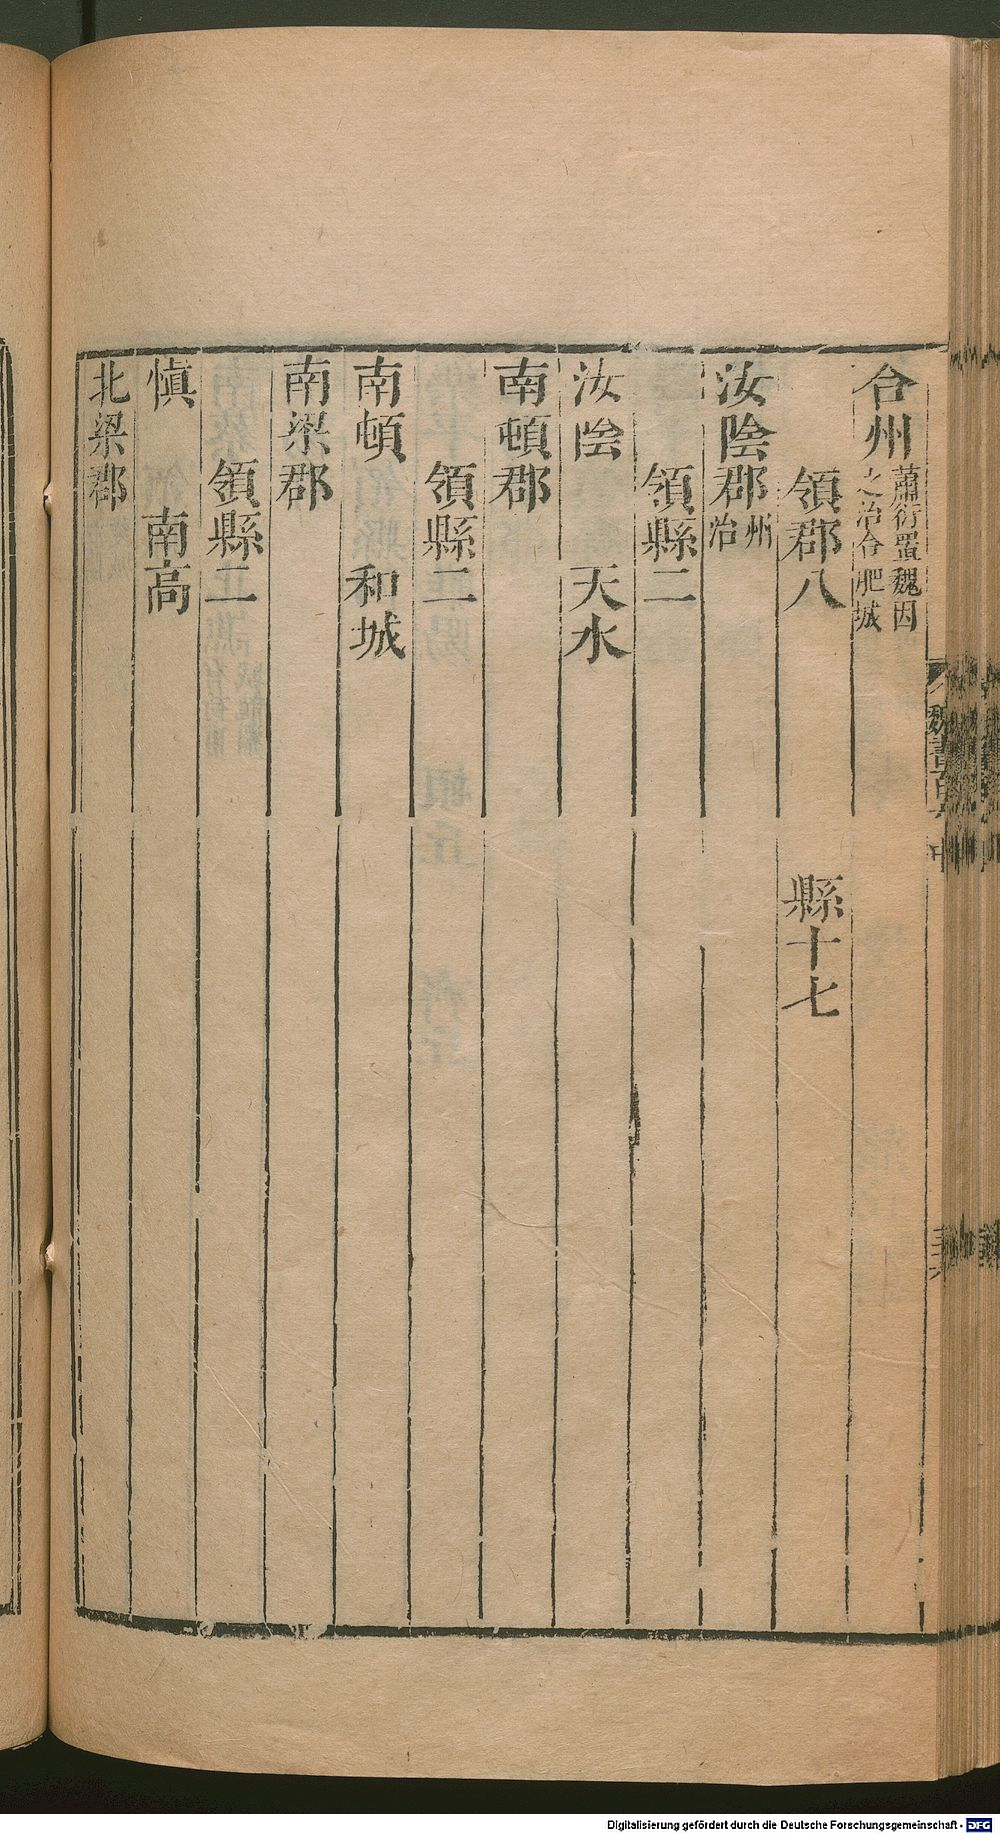 合州蕭衍置魏因之治合肥城
領郡八 縣十七
汝陰郡州治
領縣二
汝陰 天水
南頓郡
領縣二
南頓 和城
南梁郡
領縣二
慎 南高
北梁郡
魏書百六中
Digitalisierung gefördert durch die Deutsche Forschungsgemeinschaft - DFG